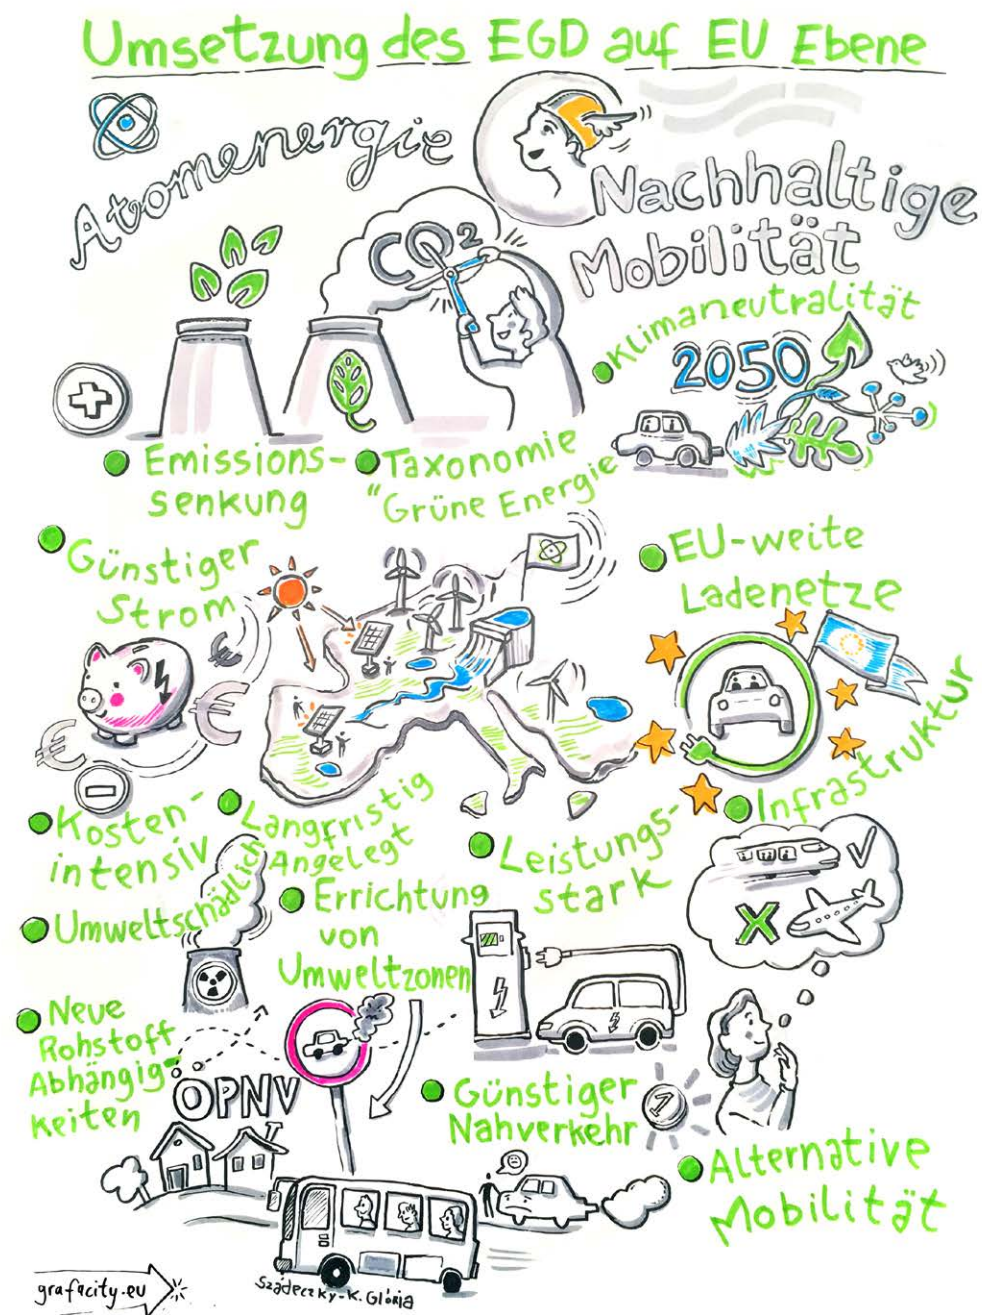 Umsetzung des EGD auf EU Ebene
Atomenergie
CO2
Nachhaltige
Mobilität
Klimaneutralität
2050
Emissions-
senkung
Taxonomie
"Grüne Energie
Günstiger
Strom
EU-weite
Ladenetze
€
€
€
Kosten-
intensiv
Langfristig
Angelegt
Leistungs-
stark
Infrastruktur
Umweltschädlich
Errichtung
von
Umweltzonen
Neue
Rohstoff
Abhängig-
keiten
ÖPNV
Günstiger
Nahverkehr
1
Alternative
Mobilität
grafacity.eu
Szádeczky-K. Glória